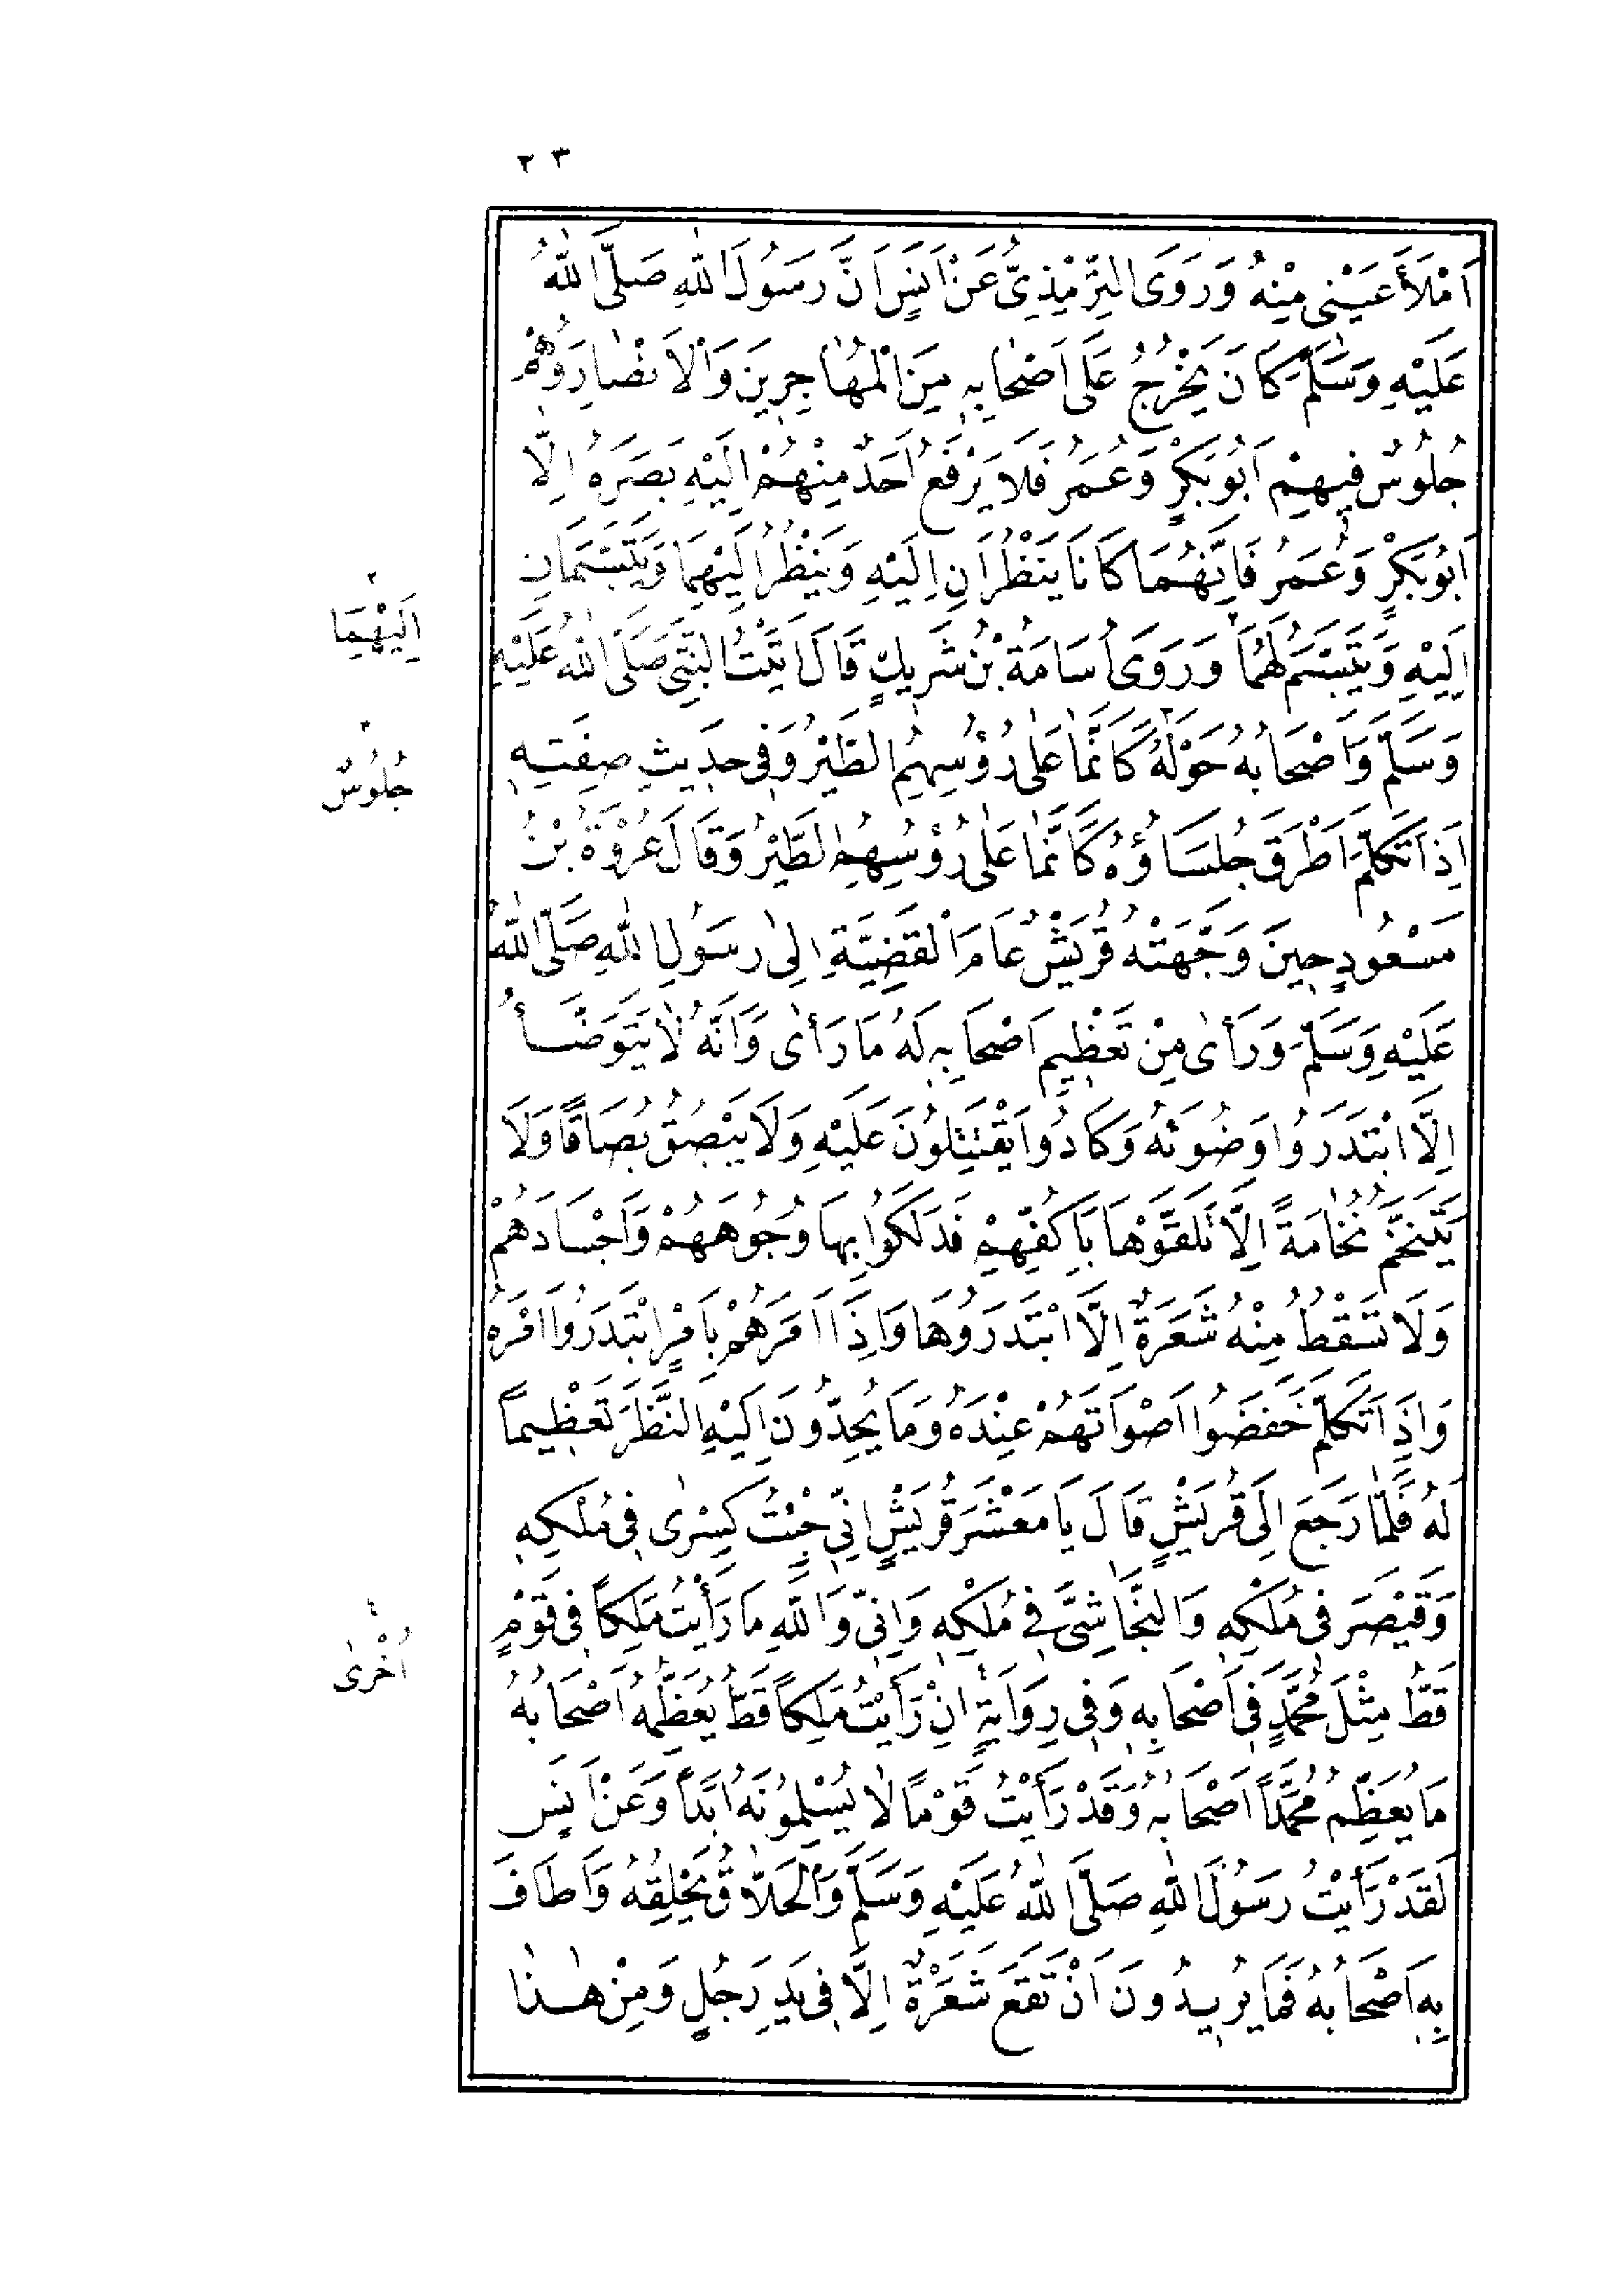 ٢٣
اَمْلَأَ عَيْنِى مِنْهُ وَرَوَى التِّرْمِذِىُّ عَنْ اَنَسٍ اَنَّ رَسُولَ اللّٰهِ صَلَّى اللّٰهُ
عَلَيْهِ وَسَلَّمَ كَانَ يَخْرُجُ عَلَى اَصْحَابِهِ مِنَ الْمُهَاجِرِينَ وَالْاَنْصَارِ وَهُمْ
جُلُوسٌ فِيهِمْ اَبُو بَكْرٍ وَعُمَرُ فَلَا يَرْفَعُ اَحَدٌ مِنْهُمْ اِلَيْهِ بَصَرَهُ اِلَّا
اَبُو بَكْرٍ وَعُمَرُ فَاِنَّهُمَا كَانَا يَنْظُرَانِ اِلَيْهِ وَيَنْظُرُ اِلَيْهِمَا وَيَتَبَسَّمَانِ
٢
اِلَيْهِمَا
اِلَيْهِ وَيَتَبَسَّمُ لَهُمَا وَرَوَى اُسَامَةُ بْنُ شَرِيكٍ قَالَ اَتَيْتُ النَّبِىَّ صَلَّى اللّٰهُ عَلَيْهِ
وَسَلَّمَ وَاَصْحَابُهُ حَوْلَهُ كَاَنَّمَا عَلٰى رُؤُسِهِمُ الطَّيْرُ وَفِى حَدِيثِ صِفَتِهِ
٣
جُلُوسٌ
اِذَا تَكَلَّمَ اَطْرَقَ جُلَسَاؤُهُ كَاَنَّمَا عَلٰى رُؤُسِهِمُ الطَّيْرُ وَقَالَ عُرْوَةُ بْنُ
مَسْعُودٍ حِينَ وَجَّهَتْهُ قُرَيْشٌ عَامَ الْقَضِيَّةِ اِلٰى رَسُولِ اللّٰهِ صَلَّى اللّٰهُ
عَلَيْهِ وَسَلَّمَ وَرَأٰى مِنْ تَعْظِيمِ اَصْحَابِهِ لَهُ مَا رَأٰى وَاَنَّهُ لَا يَتَوَضَّأُ
اِلَّا ابْتَدَرُوا وَضُوئَهُ وَكَادُوا يَقْتَتِلُونَ عَلَيْهِ وَلَا يَبْصُقُ بُصَاقًا وَلَا
يَتَنَخَّمُ نُخَامَةً اِلَّا تَلَقَّوْهَا بِاَكُفِّهِمْ فَدَلَكُوا بِهَا وُجُوهَهُمْ وَاَجْسَادَهُمْ
وَلَا تَسْقُطُ مِنْهُ شَعَرَةٌ اِلَّا ابْتَدَرُوهَا وَاِذَا اَمَرَهُمْ بِاَمْرٍ ابْتَدَرُوا اَمْرَهُ
وَاِذَا تَكَلَّمَ خَفَضُوا اَصْوَاتَهُمْ عِنْدَهُ وَمَا يُحِدُّونَ اِلَيْهِ النَّظَرَ تَعْظِيماً
لَهُ فَلَمَّا رَجَعَ اِلَى قُرَيْشٍ قَالَ يَا مَعْشَرَ قُرَيْشٍ اِنِّى جِئْتُ كِسْرٰى فِى مُلْكِهِ
وَقَيْصَرَ فِى مُلْكِهِ وَالنَّجَاشِىَّ فِى مُلْكِهِ وَاِنِّى وَاللّٰهِ مَا رَأَيْتُ مَلِكاً فِى قَوْمٍ
٤
اُخْرٰى
قَطُّ مِثْلَ مُحَمَّدٍ فِى اَصْحَابِهِ وَفِى رِوَايَةٍ اِنْ رَأَيْتُ مَلِكاً قَطُّ يُعَظِّمُهُ اَصْحَابُهُ
مَا يُعَظِّمُ مُحَمَّداً اَصْحَابُهُ وَقَدْ رَأَيْتُ قَوْمًا لَا يُسْلِمُونَهُ اَبَداً وَعَنْ اَنَسٍ
لَقَدْ رَأَيْتُ رَسُولَ اللّٰهِ صَلَّى اللّٰهُ عَلَيْهِ وَسَلَّمَ وَالْحَلَّاقُ يَحْلِقُهُ وَاَطَافَ
بِهِ اَصْحَابُهُ فَمَا يُرِيدُونَ اَنْ تَقَعَ شَعَرَةٌ اِلَّا فِى يَدِ رَجُلٍ وَمِنْ هٰذَا